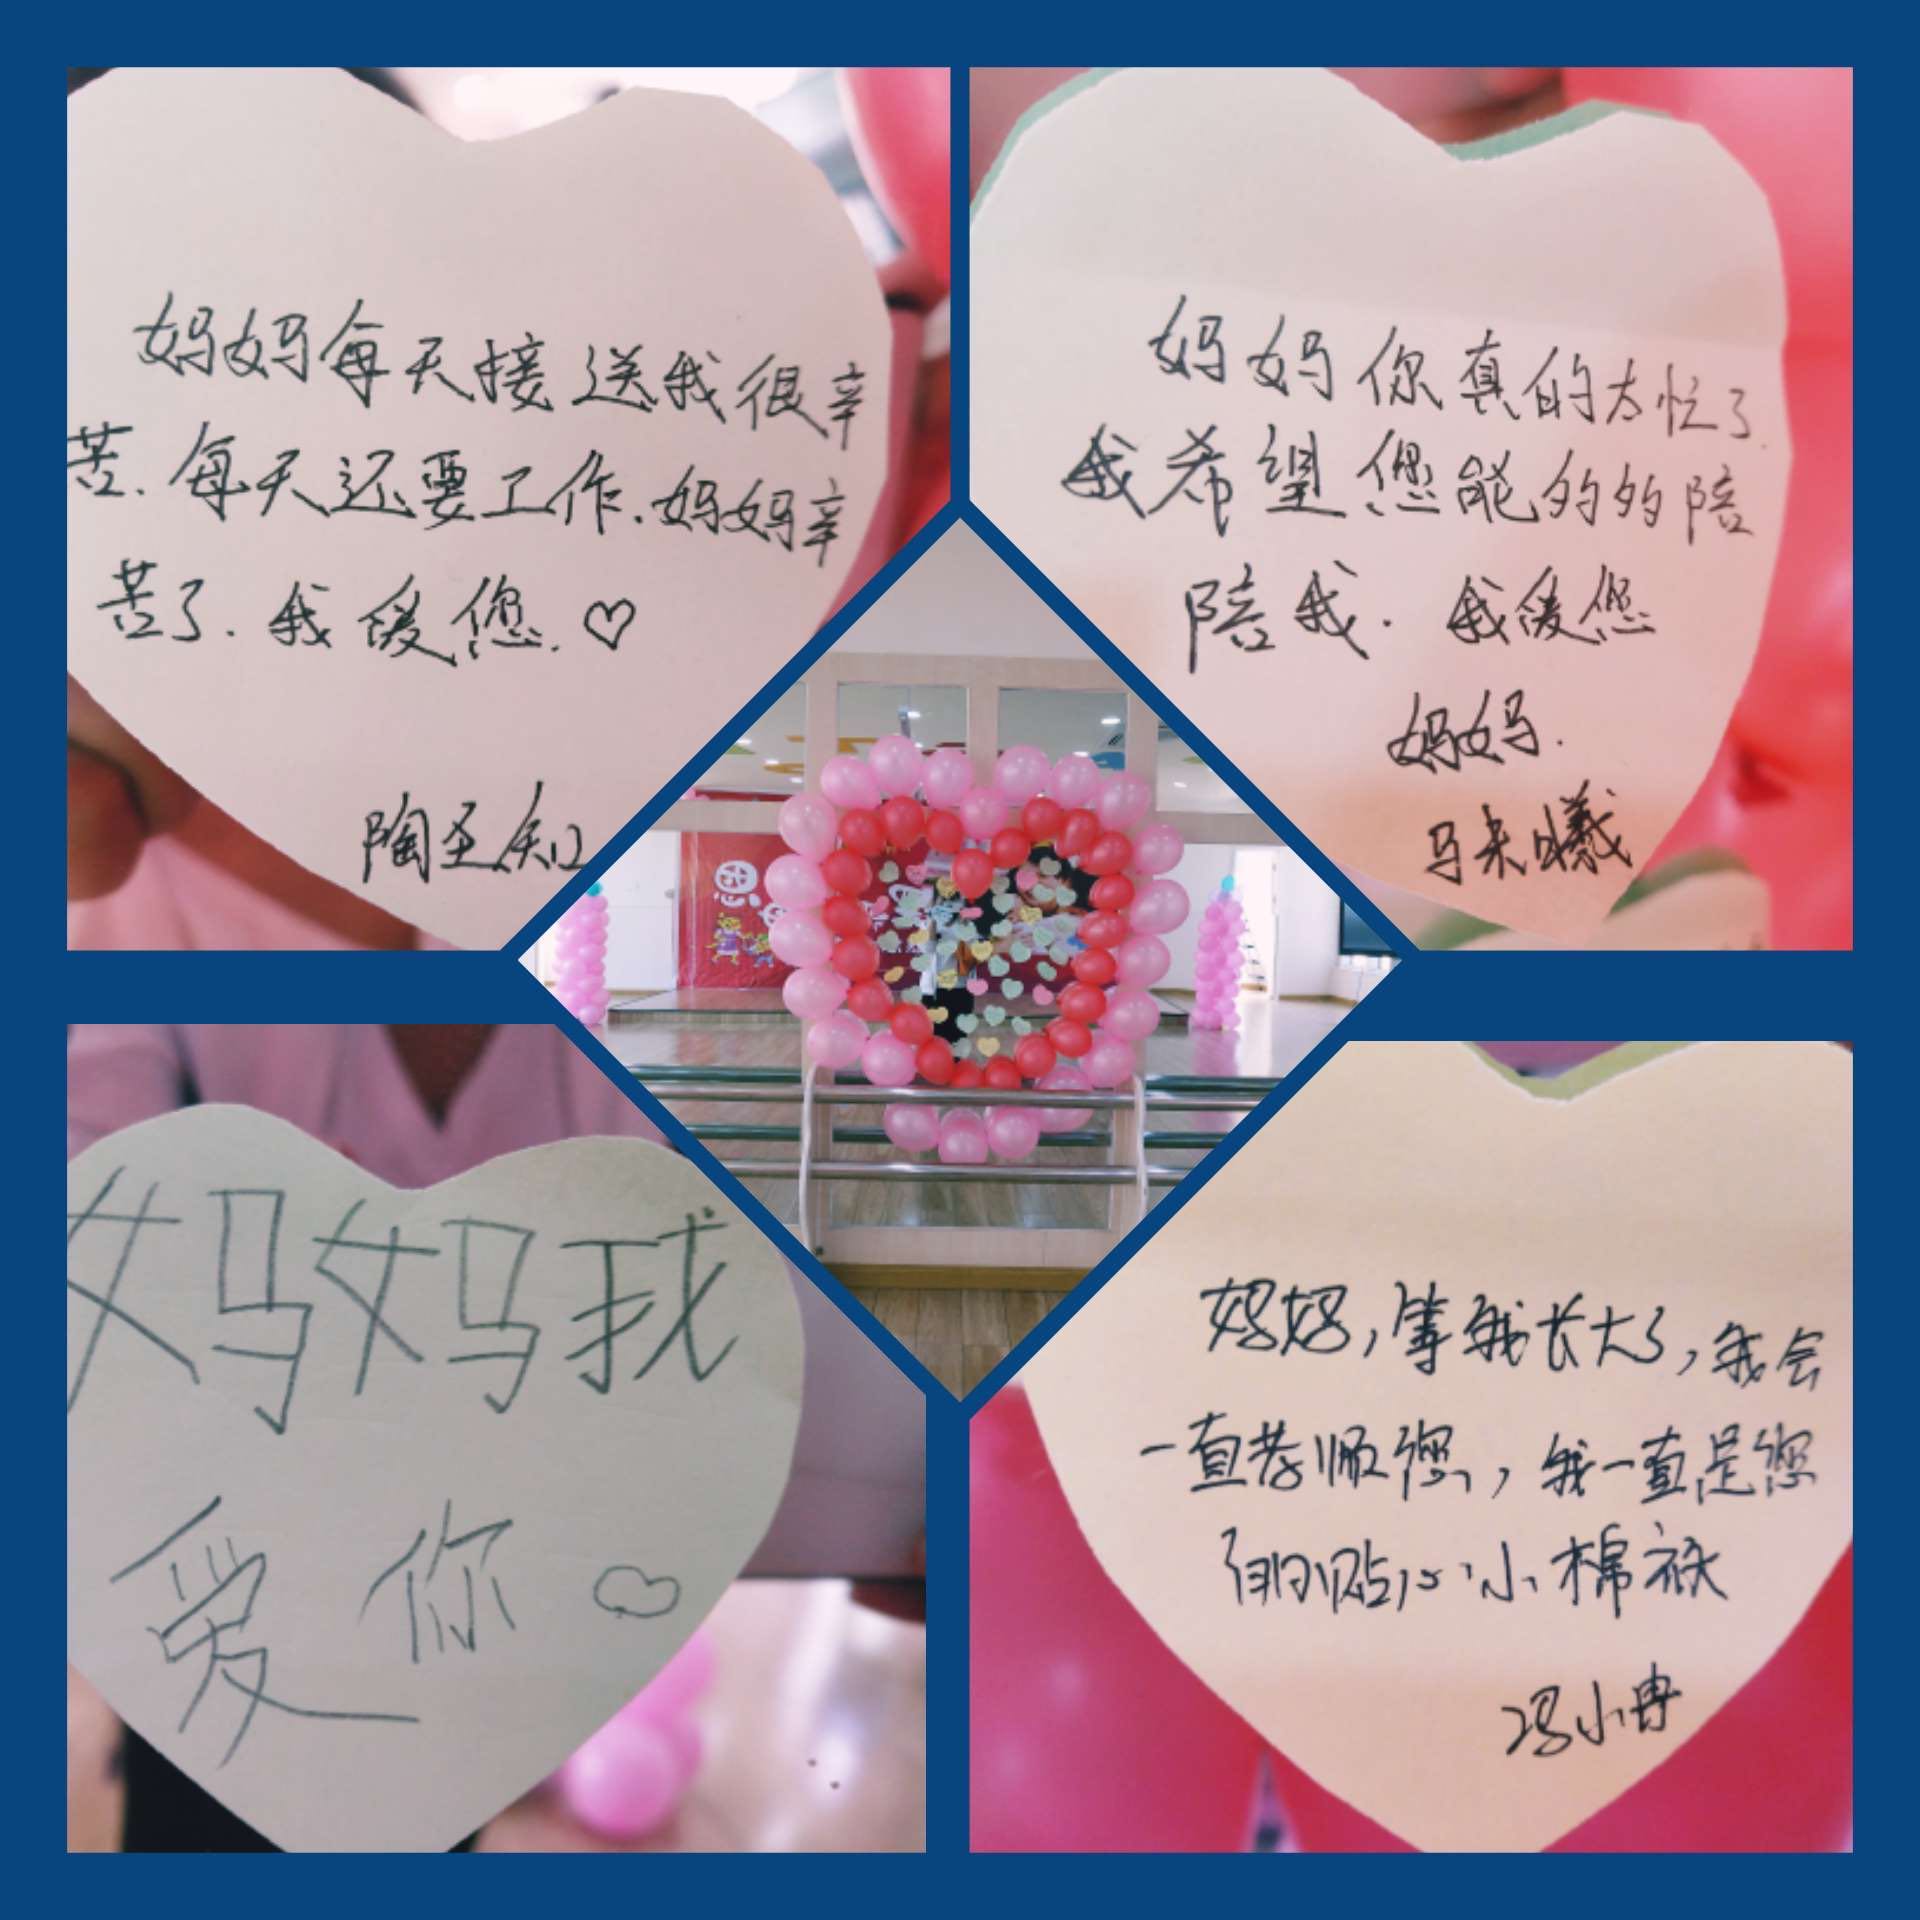 妈妈每天接送我很辛
苦.每天还要工作.妈妈辛
苦了.我爱您.♡
陶圣知
妈妈你真的太忙了.
我希望您能多多陪
陪我.我爱您
妈妈.
马来曦
思
妈妈我
爱你
妈妈,等我长大了,我会
一直孝顺您,我一直是您
的贴心小棉袄
冯小冉